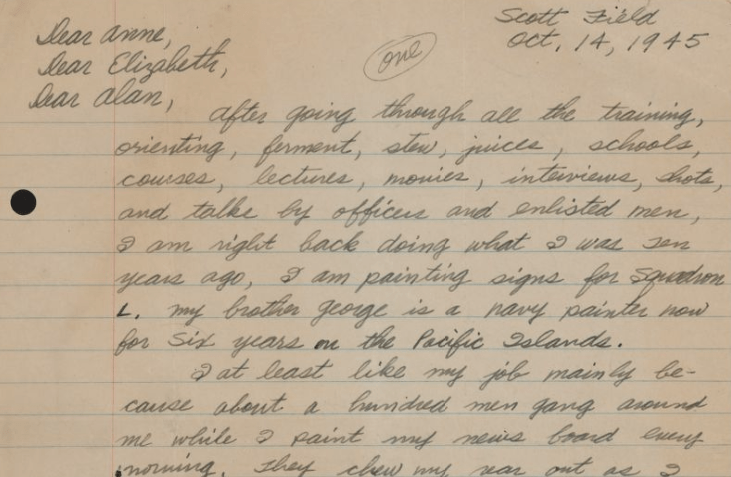 Scott Field
Oct, 14, 1945
Dear Anne,
Dear Elizabeth,
Dear Alan,
one
After going through all the training,
orienting, ferment, stew, juices, schools,
courses, lectures, movies, interviews, shots,
and talks by officers and enlisted men,
I am right back doing what I was ten
years ago, I am painting signs for Squadron
L. my brother George is a navy painter now
for Six years on the Pacific Islands.
I at least like my job mainly be-
cause about a hundred men gang around
me while I paint my news board every
morning. They chew my rear out as I